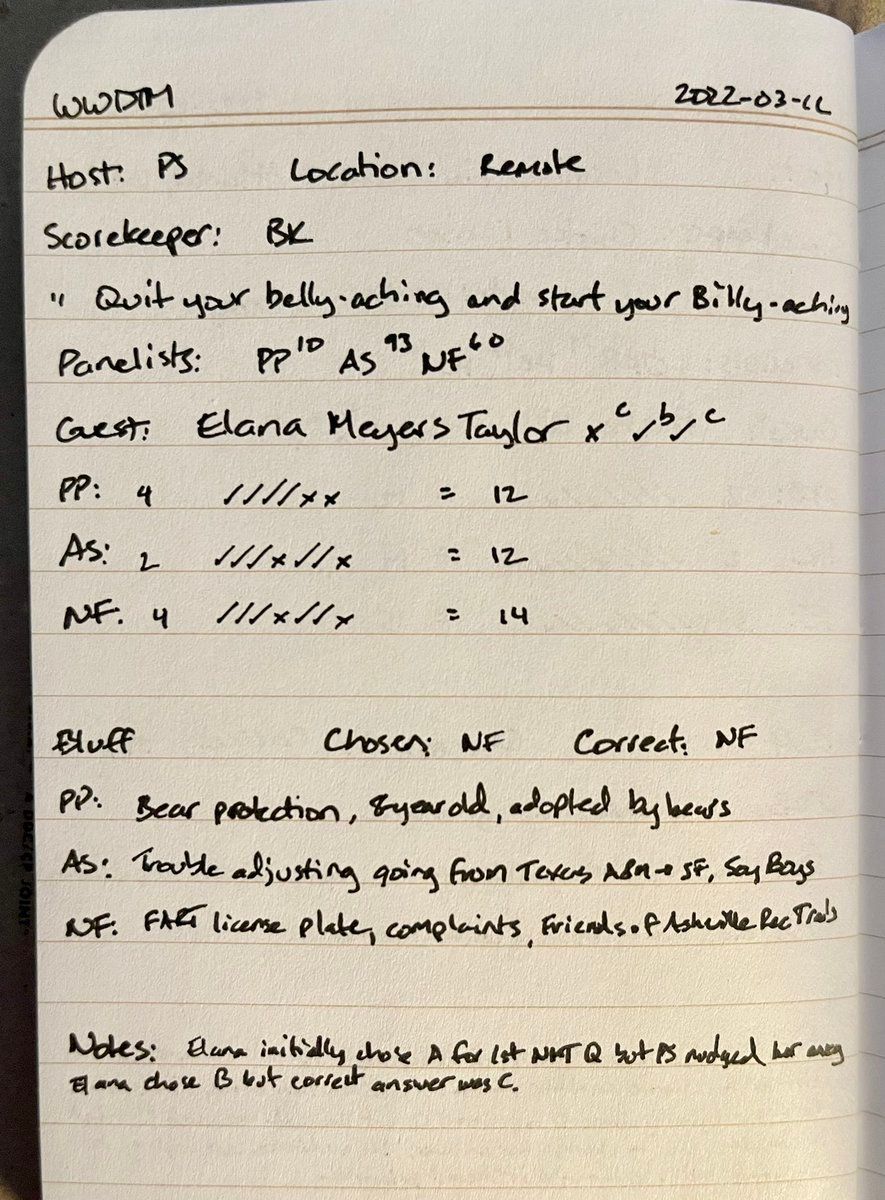 WWDTM 2022-03-12
Host: PS Location: Remote
Scorekeeper: BK
" Quit your belly-aching and start your Billy-aching
Panelists: PP 10 AS 93 NF 60
Guest: Elana Meyers Taylor x c ✓ b ✓ c
PP: 4 ////xx = 12
AS: 2 ///x//x = 12
NF: 4 ///x//x = 14
Bluff Chosen: NF Correct: NF
PP: Bear protection, 8 year old, adopted by bears
AS: Trouble adjusting going from Texas A&M → SF, Say Bags
NF: FART license plate, complaints, Friends of Asheville Rec Trails
Notes: Elana initially chose A for 1st NMT Q but PS nudged her away
Elana chose B but correct answer was C.